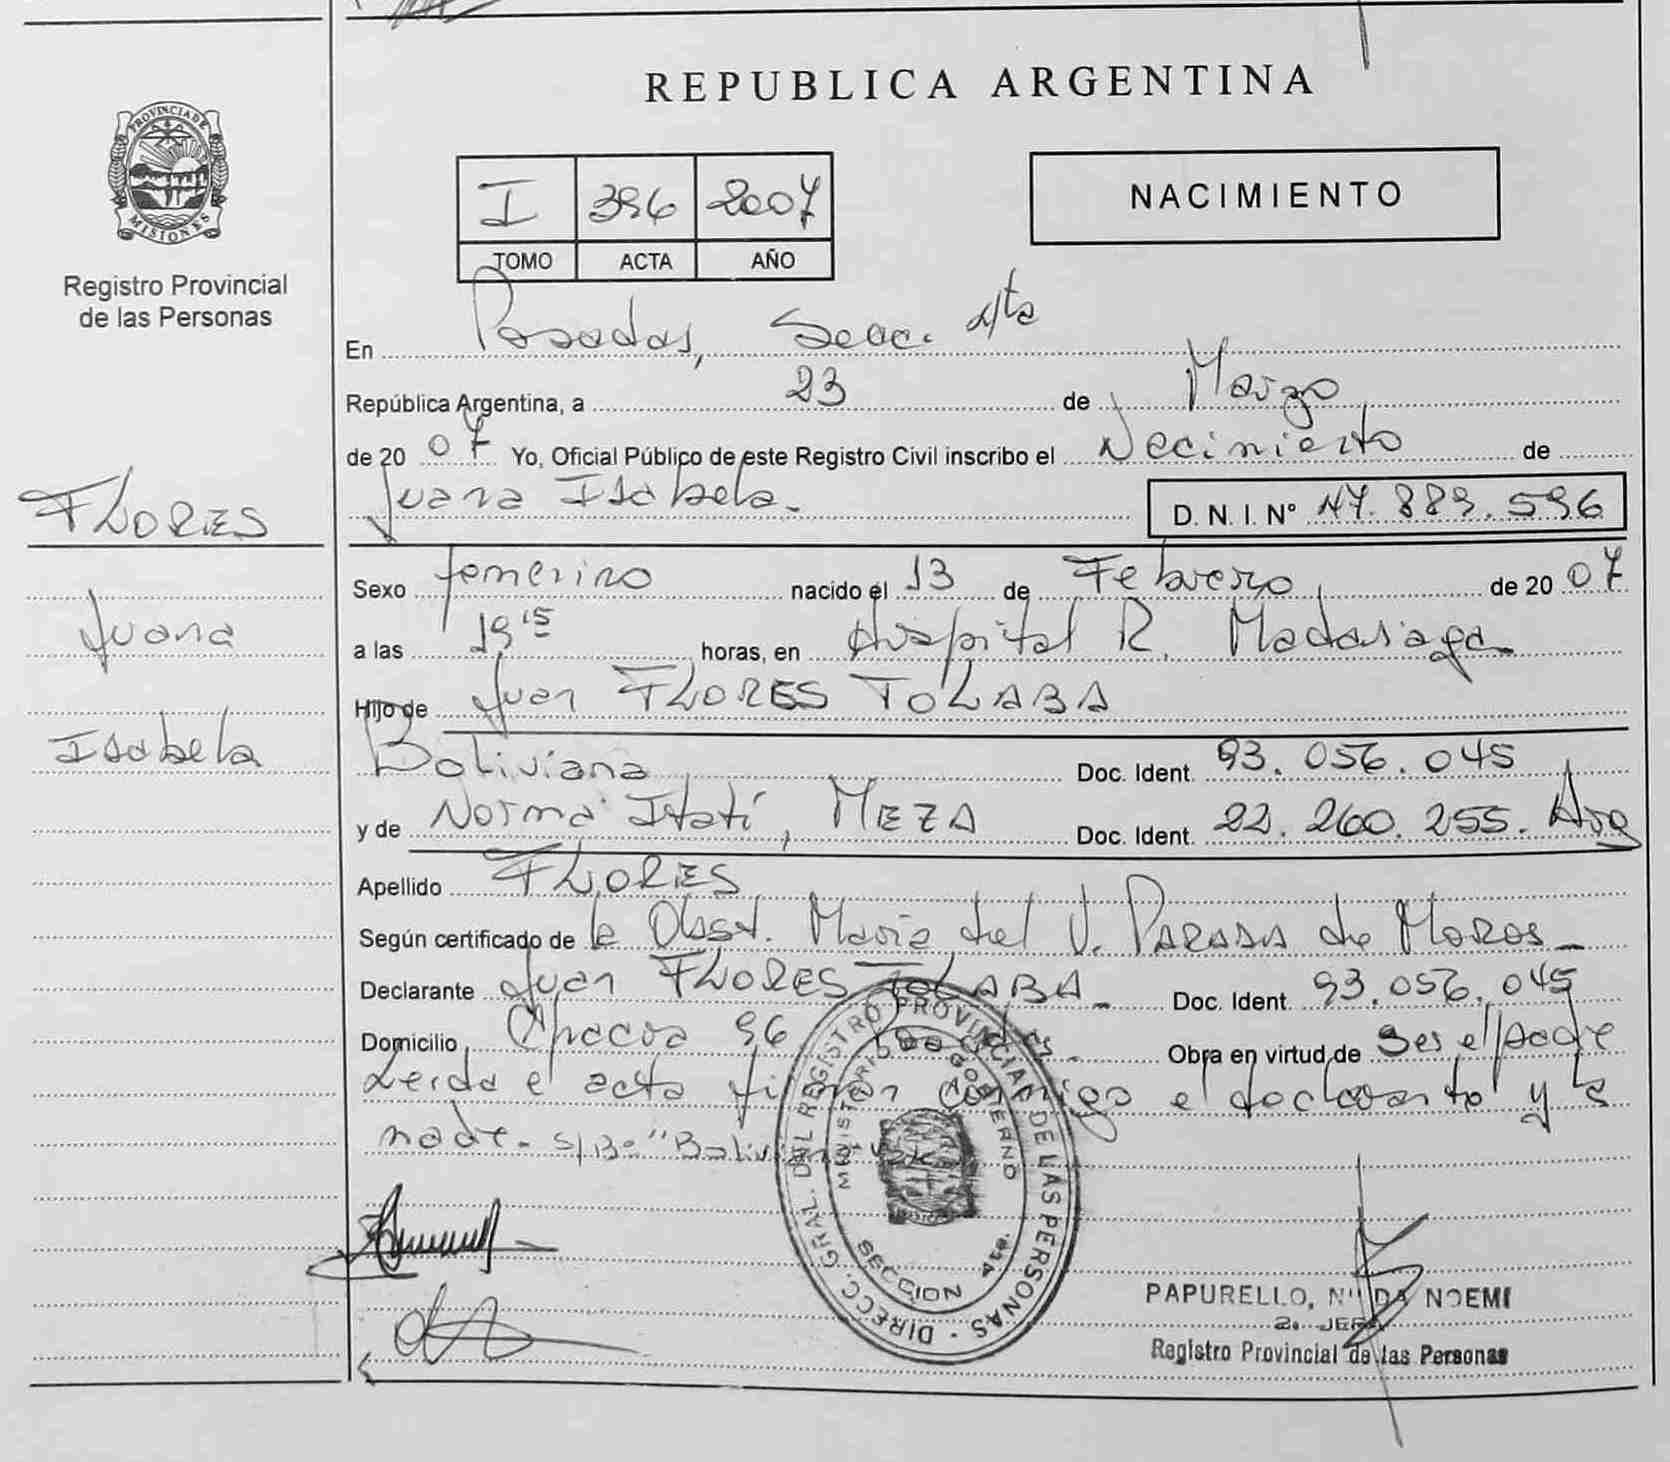 REPUBLICA ARGENTINA
PROVINCIA DE MISIONES
Registro Provincial
de las Personas
I 396 2007
TOMO ACTA AÑO
NACIMIENTO
En Posadas, Secc. 4ta
República Argentina, a 23 de Marzo
de 20 07 Yo, Oficial Público de este Registro Civil inscribo el Nacimiento de
Juana Isabela.
D. N. I. Nº 47.889.596
FLORES
Juana
Isabela
Sexo femenino nacido el 13 de Febrero de 20 07
a las 19 15 horas, en Hospital R. Madariaga
Hijo de Juan FLORES TOLABA
Boliviana Doc. Ident. 93.056.045
y de Norma Itatí, MEZA Doc. Ident. 22.260.255. Arg
Apellido FLORES
Según certificado de la Obst. Maria del V. PARADA de
Declarante Juan FLORES TOLABA Doc. Ident. 93.056.045
Domicilio 96 Posadas. Obra en virtud de ser el padre
Leida el acta firman conmigo el declarante y la
madre. S/Bo "
DIRECC. GRAL. DEL REGISTRO PROVINCIAL DE LAS PERSONAS
MINISTERIO GOBIERNO
SECCION
PAPURELLO, NOEMI
JEFA
Registro Provincial de las Personas